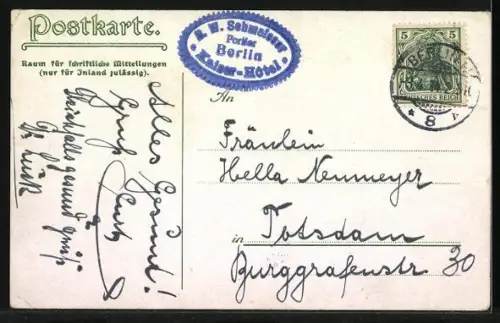 Postkarte.
Raum für schriftliche Mitteilungen
(nur für Inland zulässig).
Alles Gesund!
Gruß
Kurt
gesund
Gruß
Schmeisser
Portier
Berlin
Kaiser-Hôtel
5 5
DEUTSCHES REICH
BERLIN
8
An
Fräulein
Hella Neumeyer
in Potsdam
Burggrafenstr 30